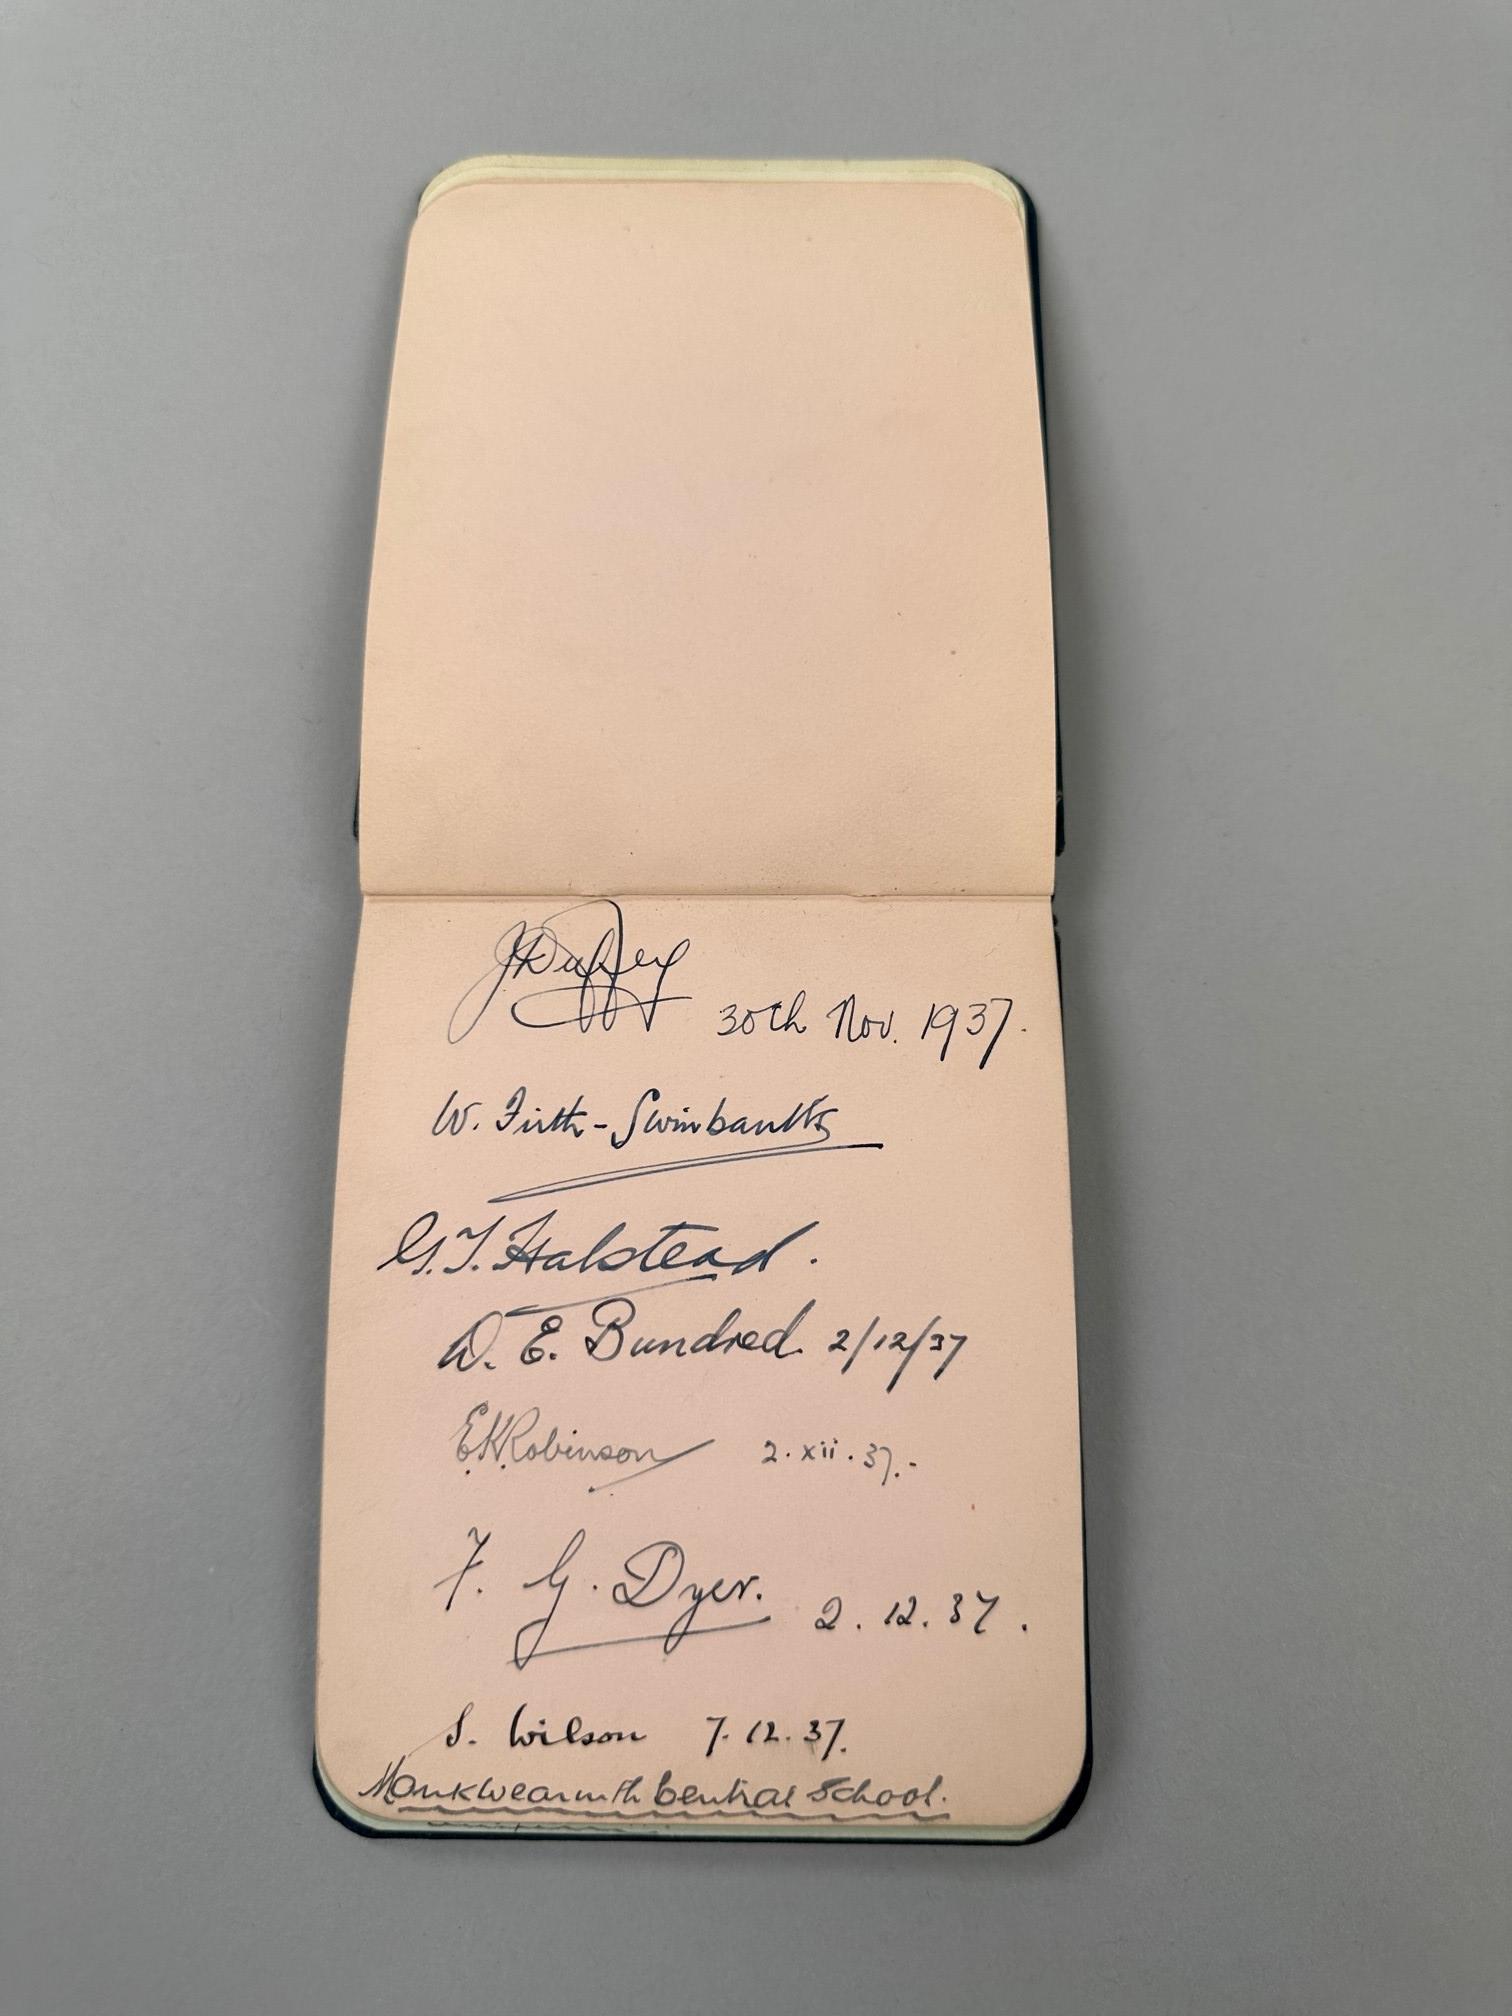 J Duffey
30th Nov. 1937.
W. Firth-Swinbanks
G.T. Halstead.
D. E. Bundred. 2/12/37
E.K.Robinson 2.xii.37.-
F. G. Dyer. 2.12.37.
S. Wilson 7.12.37.
Monkwearmouth Central School.